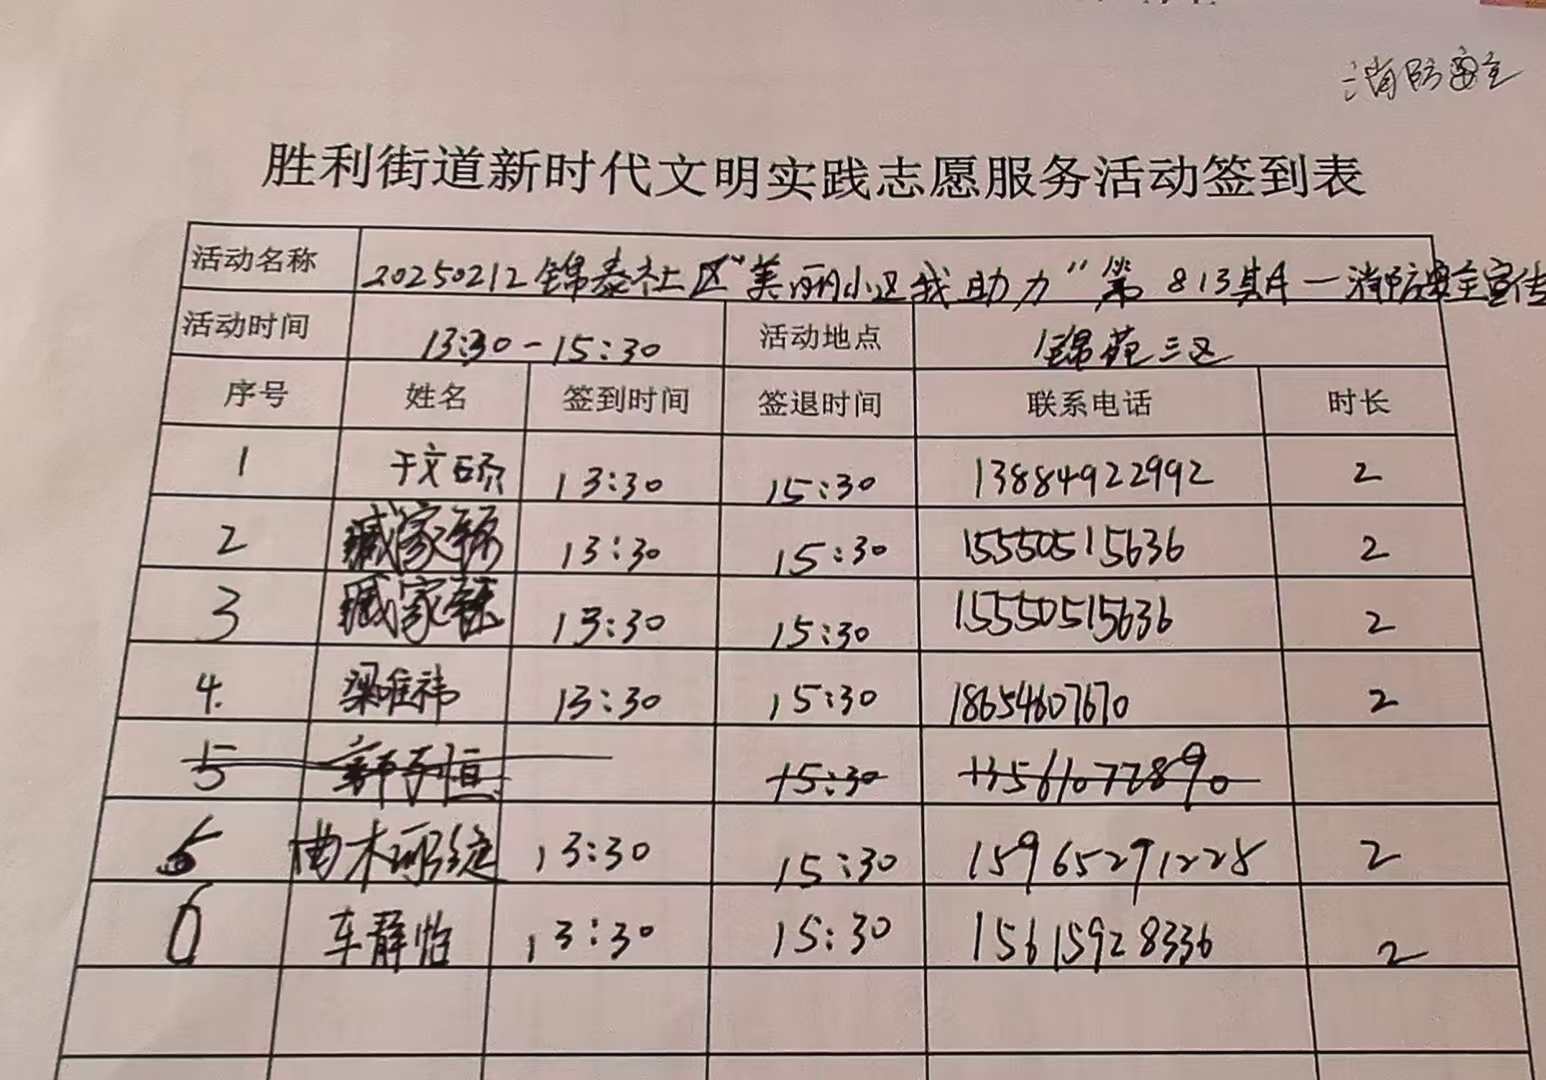 消防安全
胜利街道新时代文明实践志愿服务活动签到表
活动名称 20250212锦泰社区“美丽小区我助力”第813期—消防安全宣传
活动时间 13:30-15:30 活动地点 锦苑三区
序号 姓名 签到时间 签退时间 联系电话 时长
1 于文硕 13:30 15:30 13884922992 2
2 臧家 13:30 15:30 15550515636 2
3 臧家 13:30 15:30 15550515636 2
4. 梁唯祎 13:30 15:30 18654607670 2
5 郭子恒 15:30 13561072890
5 曲木 13:30 15:30 15965291228 2
6 车静怡 13:30 15:30 15615928336 2